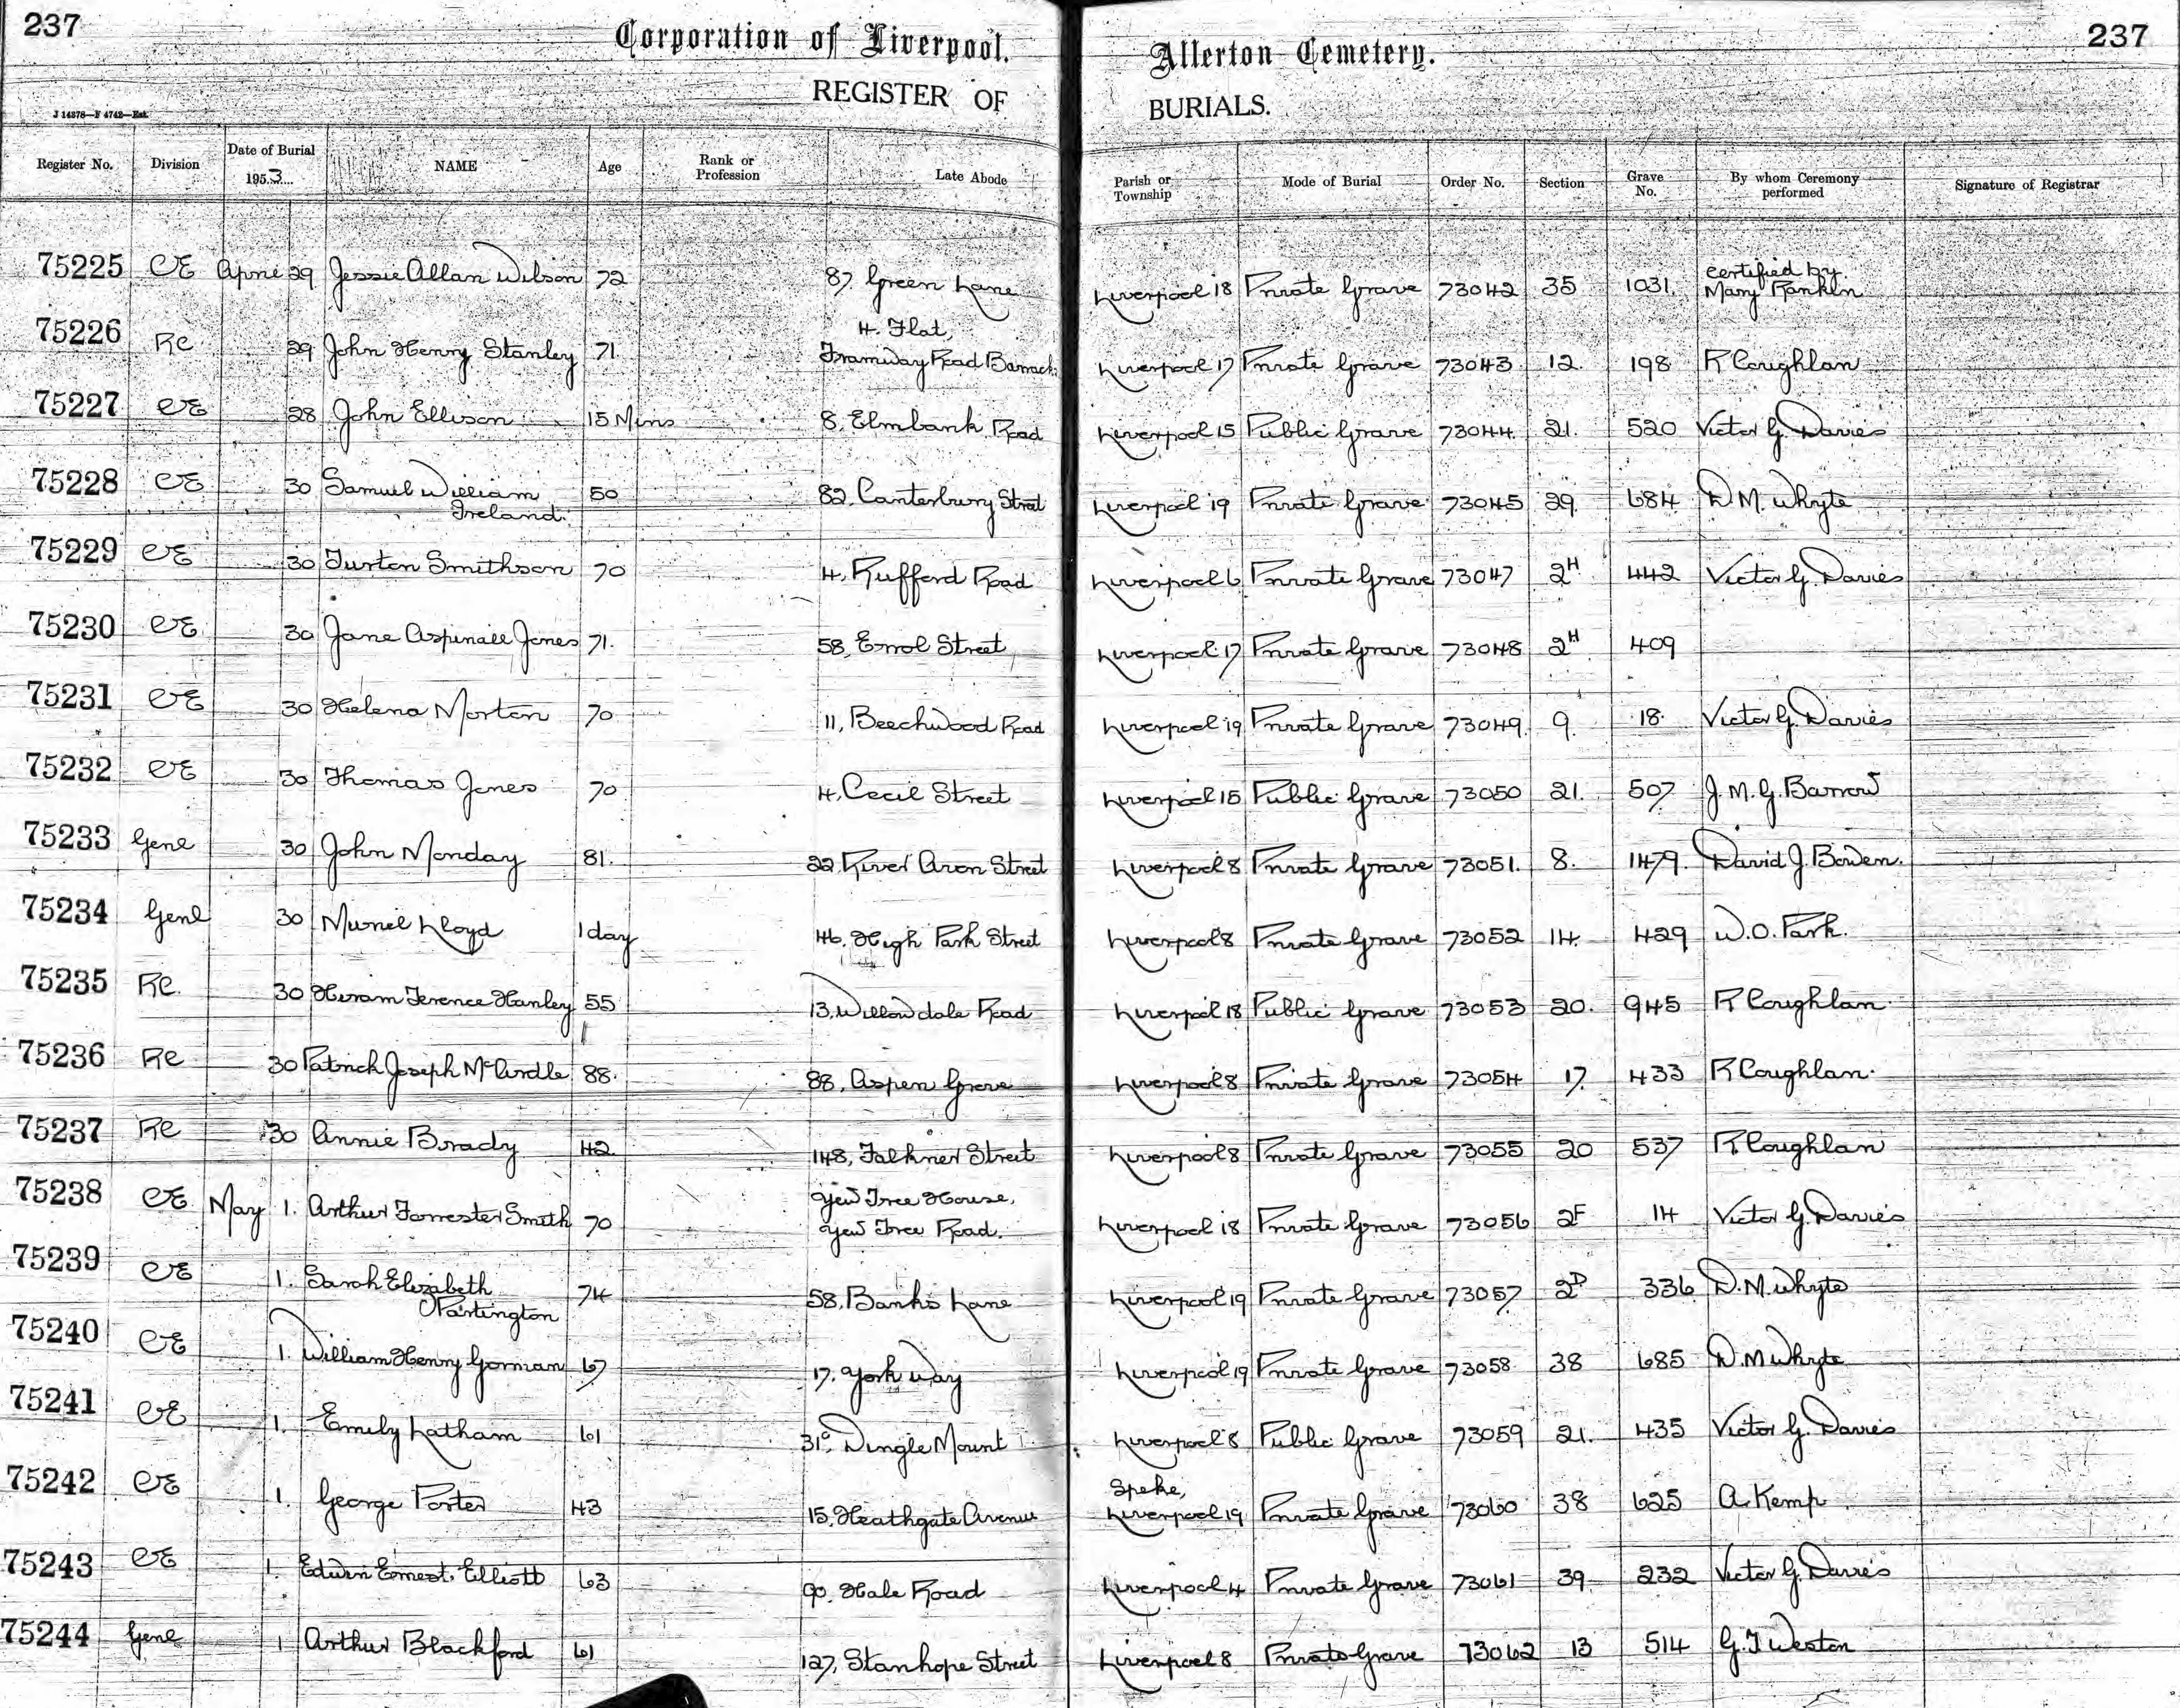 237 Corporation of Liverpool. Allerton Cemetery. 237
REGISTER OF BURIALS.
J 14378—F 4742—Est.
Register No. Division Date of Burial 1953 NAME Age Rank or Profession Late Abode Parish or Township Mode of Burial Order No. Section Grave No. By whom Ceremony performed Signature of Registrar
75225 CE April 29 Jessie Allan Wilson 72 87. Green Lane Liverpool 18 Private Grave 73042 35 1031. certified by. Mary Rankin
75226 RC 29 John Henry Stanley 71. 4. Flat, Tramway Road Barrack. Liverpool 17 Private Grave 73043 12. 198 R Coughlan
75227 CE 28 John Ellison 15 Mins 8. Elmbank Road Liverpool 15 Public Grave 73044 21. 520 Victor G. Davies
75228 CE 30 Samuel William Ireland. 50 82. Canterbury Street Liverpool 19 Private Grave 73045 29. 684 D M. Whyte
75229 CE 30 Turton Smithson 70 4, Rufford Road Liverpool 6 Private Grave 73047 2H 442 Victor G. Davies
75230 CE 30 Jane Aspinall Jones 71. 58, Errol Street Liverpool 17 Private Grave 73048 2H 409
75231 CE 30 Helena Morton 70 11, Beechwood Road Liverpool 19 Private Grave 73049 9 18. Victor G. Davies
75232 CE 30 Thomas Jones 70 4, Cecil Street Liverpool 15 Public Grave 73050 21. 507 J. M. G. Barrow
75233 Genl 30 John Monday 81. 22 River Avon Street Liverpool 8 Private Grave 73051. 8. 1479. David J. Bowen.
75234 Genl 30 Muriel Lloyd 1 day 46. High Park Street Liverpool 8 Private Grave 73052 14. 429 W. O. Park.
75235 RC. 30 Hiram Terence Hanley 55 13, Willowdale Road Liverpool 18 Public Grave 73053 20. 945 R Coughlan
75236 RC 30 Patrick Joseph McArdle 88. 88, Aspen Grove Liverpool 8 Private Grave 73054 17 433 R Coughlan.
75237 RC 30 Annie Brady 42. 148, Falkner Street Liverpool 8 Private Grave 73055 20 537 R Coughlan
75238 CE May 1. Arthur Forrester Smith 70 Yew Tree House, Yew Tree Road. Liverpool 18 Private Grave 73056 2F 14 Victor G. Davies
75239 CE 1. Sarah Elizabeth Partington 74 58, Banks Lane Liverpool 19 Private Grave 73057 2D 336 D. M. Whyte
75240 CE 1. William Henry Gorman 67 17. York Way Liverpool 19 Private Grave 73058 38 685 D. M Whyte
75241 CE 1. Emily Latham 61 31a, Dingle Mount Liverpool 8 Public Grave 73059 21. 435 Victor G. Davies
75242 CE 1. George Porter 43 15. Heathgate Avenue Speke, Liverpool 19 Private Grave 73060 38 625 A. Kemp
75243 CE 1. Edwin Ernest Elliott 63 90. Hale Road Liverpool 4 Private Grave 73061 39. 232 Victor G. Davies
75244 Genl 1 Arthur Blackford 61 127, Stanhope Street Liverpool 8 Private Grave 73062 13 514 G. T Weston